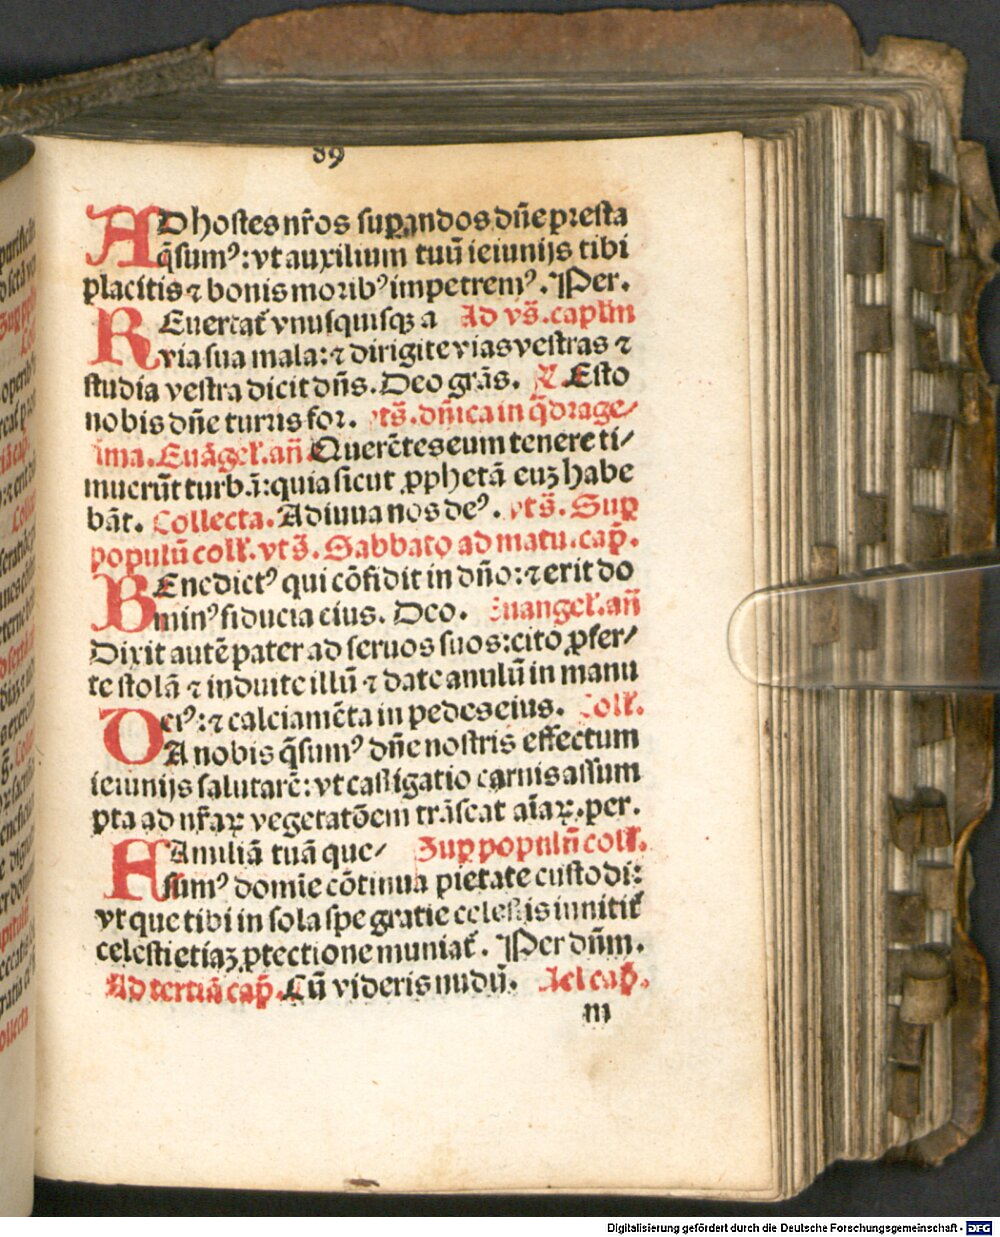 89
AD hostes nr̄os suꝑandos dn̄e presta
q̄sumꝰ: vt auxilium tuū ieiunijs tibi
placitis ⁊ bonis moribꝰ impetremꝰ. Per.
REuertat᷑ vnusquisqꝫ a Ad vs̄. caplm
via sua mala: ⁊ dirigite vias vestras ⁊
studia vestra dicit dn̄s. Deo grās. ℟. Esto
nobis dn̄e turris for. vts̄. dn̄ica in q̄drage/
sima. Euāgel̄. an̄. Querētes eum tenere ti/
muerūt turbā: quia sicut ꝓphetā euꝫ habe
bāt. Collecta. Adiuua nos deꝰ. vts̄. Sup
populū coll̄. vts̄. Sabbato ad matu. cap̄.
BEnedictꝰ qui cōfidit in dn̄o: ⁊ erit do
minꝰ fiducia eius. Deo. Euangel̄. an̄
Dixit autē pater ad seruos suos: cito ꝓfer/
te stolā ⁊ induite illū ⁊ date anulū in manu
eiꝰ: ⁊ calciamēta in pedes eius. Coll̄.
DA nobis q̄sumꝰ dn̄e nostris effectum
ieiunijs salutarē: vt castigatio carnis assum
pta ad nr̄aꝝ vegetatōem trāseat aīaꝝ. per.
FAmiliā tuā que/ Sup populū coll̄.
sumꝰ domīe cōtinua pietate custodi:
vt que tibi in sola spe gratie celestis innitit᷑
celesti etiaꝫ ꝓtectione muniat᷑. Per dn̄m.
Ad tertiā cap̄. Cū videris nudū. Ad cap̄.
m
Digitalisierung gefördert durch die Deutsche Forschungsgemeinschaft - DFG